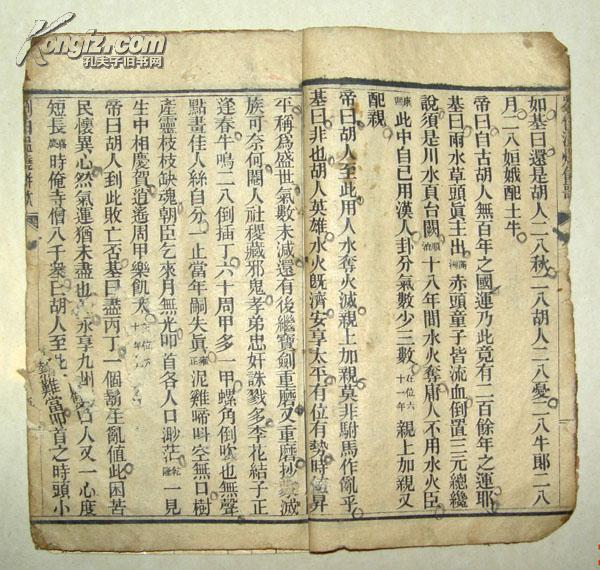 如基曰還是胡人二八秋二八胡人二八憂二八牛郎二八
月二八姮娥配土牛
帝曰自古胡人無百年之國運乃此竟有二百餘年之運耶
基曰雨水草頭真主出滿洲赤頭童子皆流血倒置三元總纔
說須是川水頁台闕順治十八年間水火奪庸人不用水火臣
康熙此中自已用漢人卦分氣數少三數在位六十一年親上加親又
配親
帝曰胡人至此用人水奪火滅親上加親莫非駙馬作亂乎
基曰非也胡人英雄水火既濟安享太平有位有勢時值昇
平稱為盛世氣數未滅還有後繼寶劍重磨又重磨抄家滅
族可奈何閹人社稷藏邪鬼孝弟忠奸誅戮多李花結子正
逢春牛鳴二八倒插丁六十周甲多一甲螺角倒吹也無聲
點畫佳人絲自分一止當年嗣失真雍正泥雞啼叫空無口樹
產靈枝枝缺魂朝臣乞來月無光叩首各人口渺茫乾隆一見
生中相慶賀逍遙周甲樂飢荒在位六十年
帝曰胡人到此敗亡否基曰盡丙丁一個鬍生亂值此困苦
民悽異心然氣運猶未盡也 永享九州 口人又一心度
短長嘉慶時俺寺僧八千眾已胡人至此 難當叩首之時頭小
劉伯溫燒餅歌
孔夫子旧书网